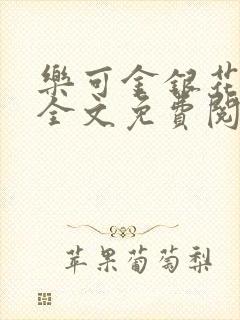 樂可金銀花
全文免費閱
苹果葡萄梨